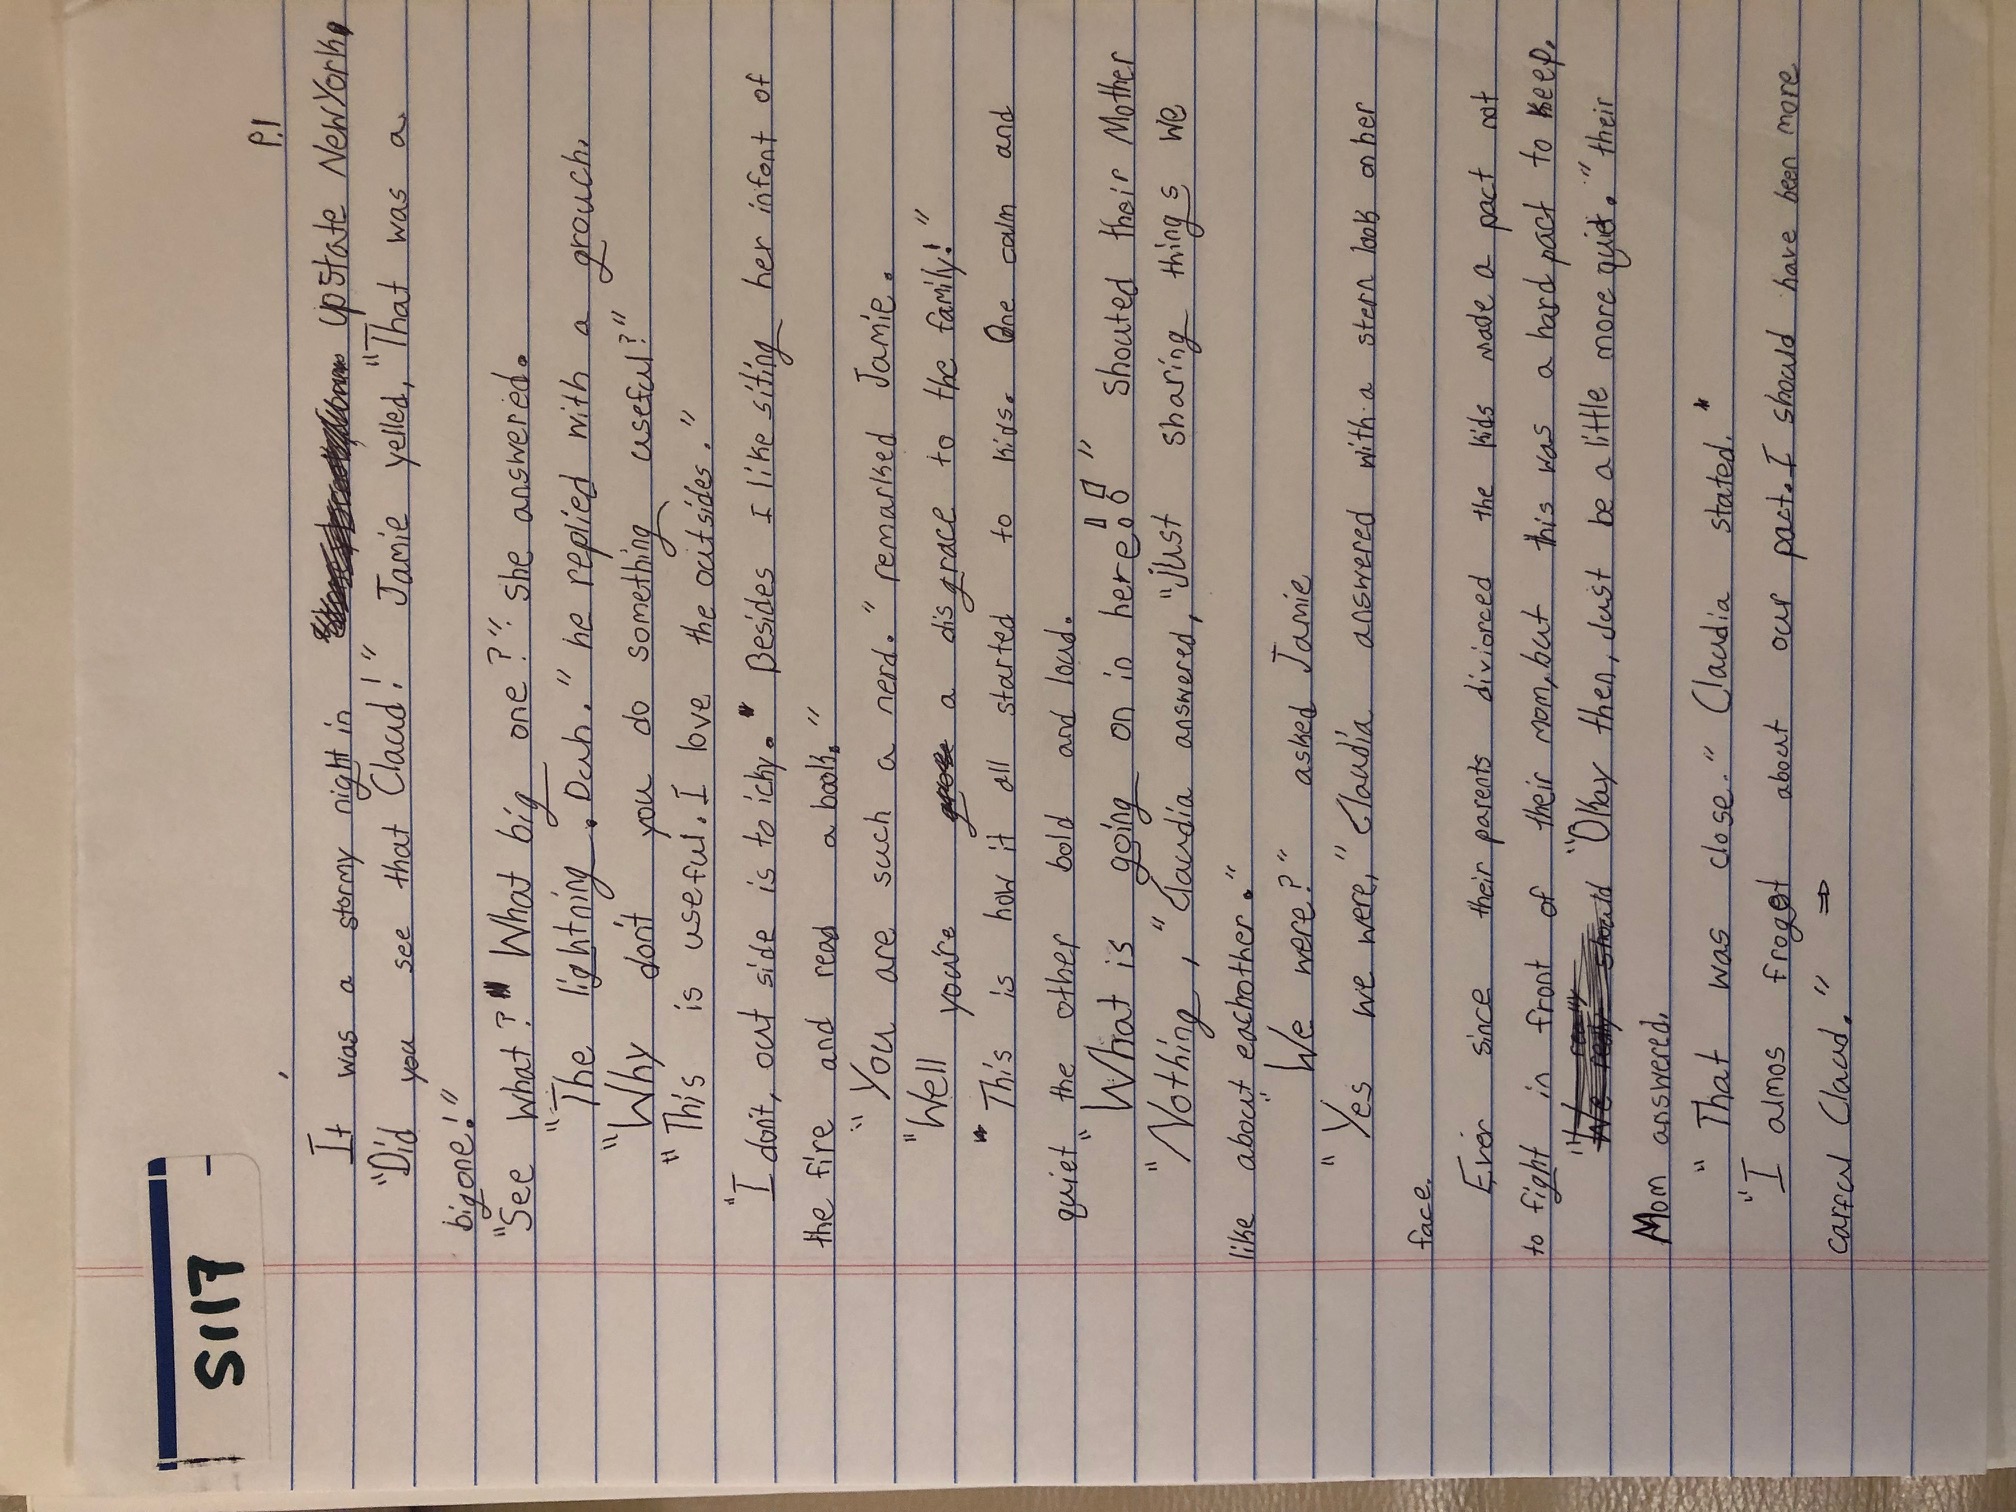 S117
P.1
It was a stormy night in upstate New York.
"Did you see that Claud!" Jamie yelled, "That was a
big one!"
"See what? What big one?" she answered.
"The lightning. Duh." he replied with a grouch.
"Why don't you do something useful?"
"This is useful. I love the outsides."
"I don't, out side is to icky. Besides I like siting her infont of
the fire and read a book."
"You are such a nerd." remarked Jamie.
"Well you're a disgrace to the family!"
This is how it all started to kids. One calm and
quiet the other bold and loud.
"What is going on in here!!" shouted their Mother
"Nothing," Claudia answered, "just sharing things we
like about eachother."
"We were?" asked Jamie
"Yes we were," Claudia answered with a stern look on her
face.
Ever since their parents diviorced the kids made a pact not
to fight in front of their mom, but this was a hard pact to keep.
"We really should "Okay then, Just be a little more quiet." their
Mom answered.
"That was close." Claudia stated.
"I almos froget about our pact. I should have been more
carful Claud." ⇒